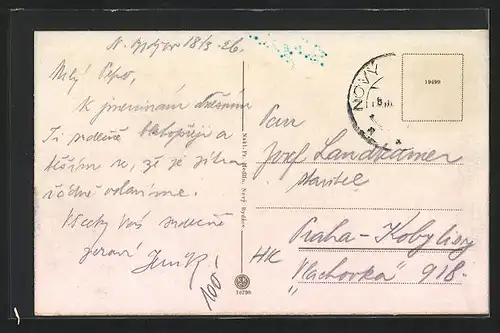 N. Bydžov 18/3 26.
Milý Pepo,
K jmeninám dnešním
Ti srdečně blahopřeji a
těším se, že je zítra
řádně oslavíme.
Všecky Vás srdečně
zdraví Jeník!
160!
Nakl. Fr. Hodlín, Nový Bydžov
16798
NOVÝ
19499
Pan
Josef Landkamer
stavitel
Praha-Kobylisy
HK
"Vlachovka" 918.